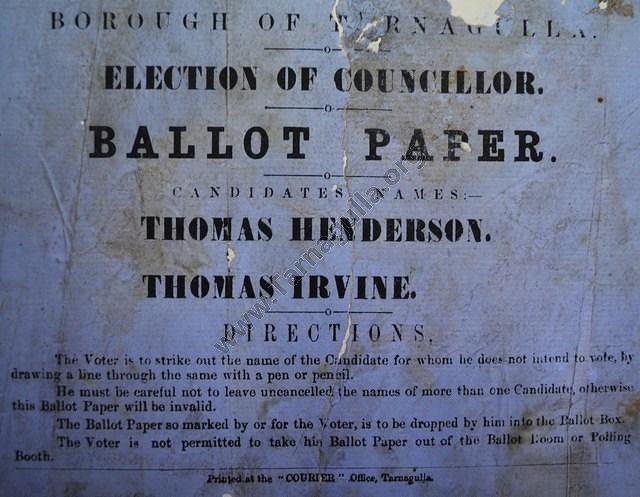 BOROUGH OF TARNAGULLA.
ELECTION OF COUNCILLOR.
BALLOT PAPER.
CANDIDATES NAMES:—
THOMAS HENDERSON.
THOMAS IRVINE.
DIRECTIONS.
The Voter is to strike out the name of the Candidate for whom he does not intend to vote, by
drawing a line through the same with a pen or pencil.
He must be careful not to leave uncancelled the names of more than one Candidate, otherwise
this Ballot Paper will be invalid.
The Ballot Paper so marked by or for the Voter, is to be dropped by him into the Ballot Box.
The Voter is not permitted to take his Ballot Paper out of the Ballot Room or Polling
Booth.
Printed at the "COURIER" Office, Tarnagulla.
www.Tarnagulla.org